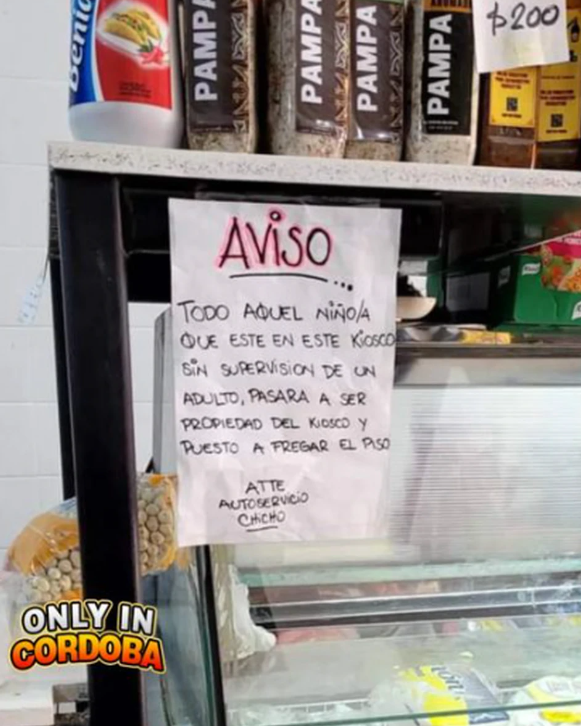 Benic
PAMPA
PAMPA
PAMPA
PAMPA
$200
AVISO
...
TODO AQUEL NIÑO/A
QUE ESTE EN ESTE KIOSCO
SIN SUPERVISION DE UN
ADULTO, PASARA A SER
PROPIEDAD DEL KIOSCO Y
PUESTO A FREGAR EL PISO
ATTE
AUTOSERVICIO
CHICHO
Knorr
ONLY IN
CORDOBA